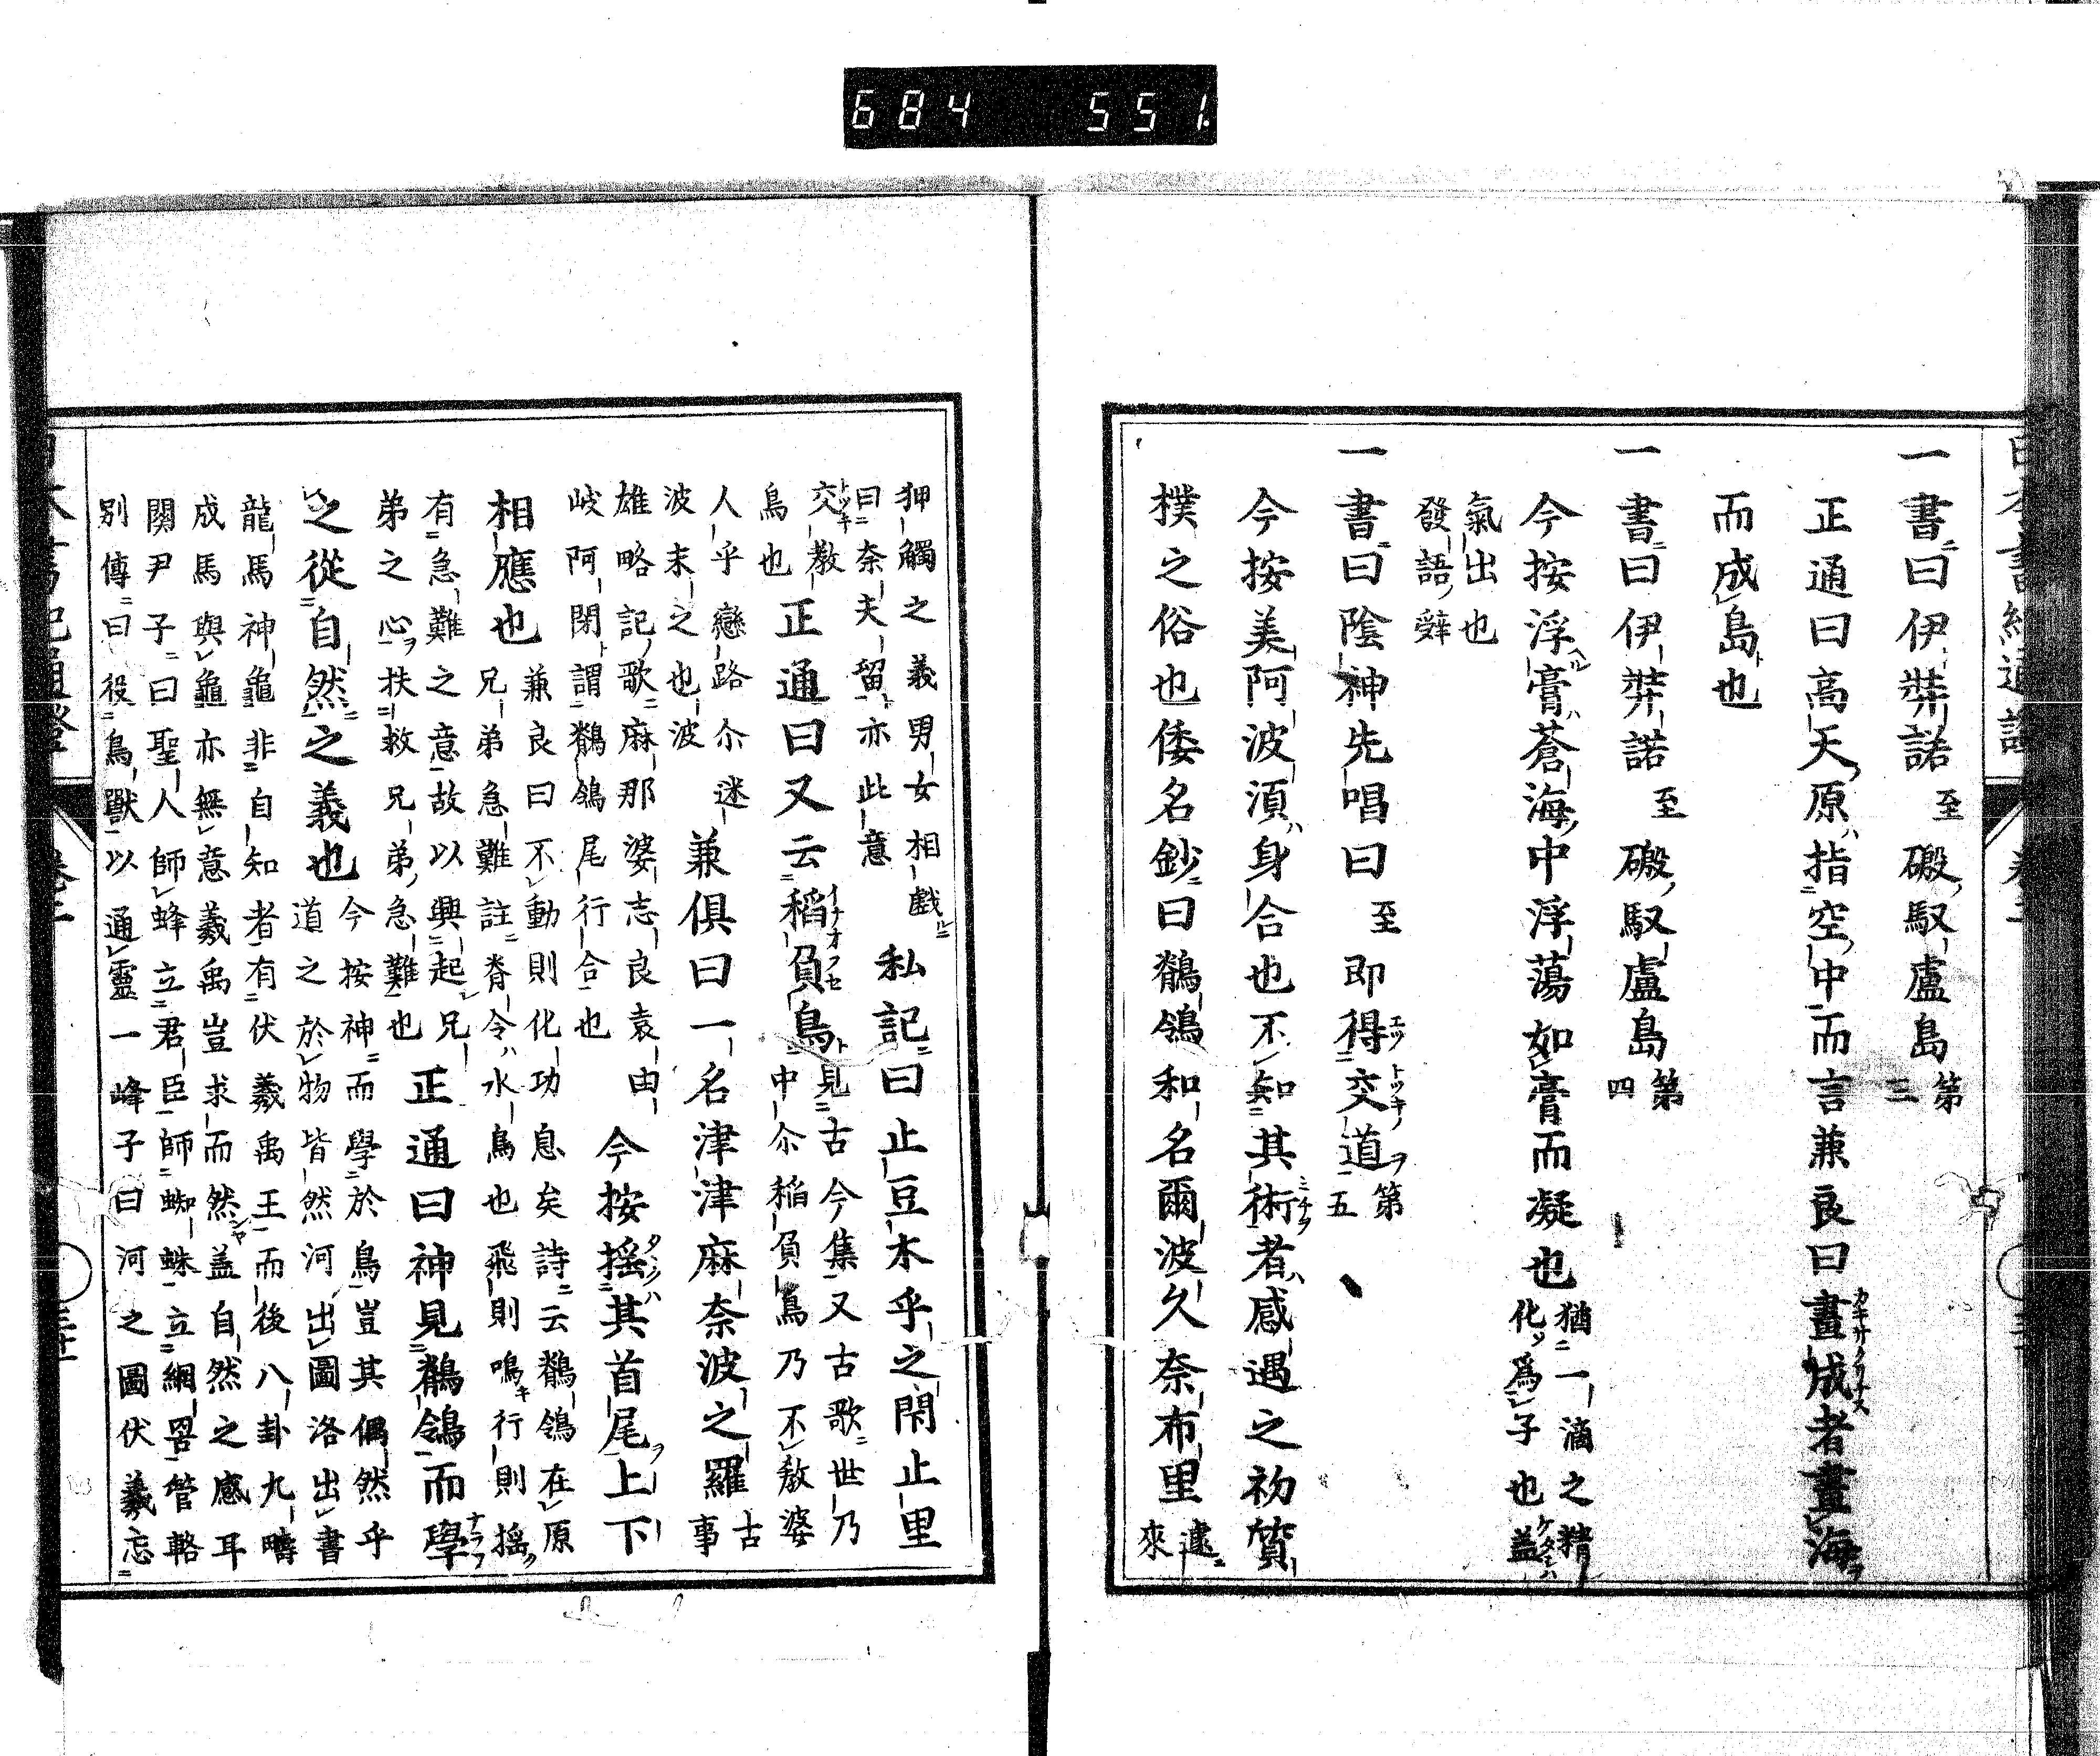 684 551
一書曰伊弉諾至磤馭盧島第三
正通曰高天原指空中而言兼良曰畫成者畫海
而成島也
一書曰伊弉諾至磤馭盧島第四
今按浮膏蒼海中浮蕩如膏而凝也猶一滴之精化爲子也蓋
氣出也發語辭
一書曰陰神先唱曰至即得交道第五
今按美阿波湏身合也不知其術者感遇之初質
樸之俗也倭名鈔曰鶺鴒和名爾波久奈布里遠來
狎觸之義男女相戲
曰奈夫留亦此意
私記曰止豆木乎之閇止里
交敎
鳥也
正通曰又云稻負鳥
見古今集又古歌世乃
中尒稲負鳥乃不敎婆
人乎戀路尒迷
波末之也波
兼俱曰一名津津麻奈波之羅古事
雄略記歌麻那婆志良袁由
岐阿閇謂鶺鴒尾行合也
今按搖其首尾上下
相應也
兼良曰不動則化功息矣詩云鶺鴒在原
兄弟急難註脊令水鳥也飛則鳴行則搖
有急難之意故以興起兄
弟之心扶救兄弟急難也
正通曰神見鶺鴒而學
之從自然之義也
今按神而學於鳥豈其偶然乎
道之於物皆然河出圖洛出書
龍馬神龜非自知者有伏羲禹王而後八卦九疇
成馬與龜亦無意羲禹豈求而然蓋自然之感耳
関尹子曰聖人師蜂立君臣師蜘蛛立網罟管輅
別傳曰役鳥獸以通靈一峰子曰河之圖伏羲忘